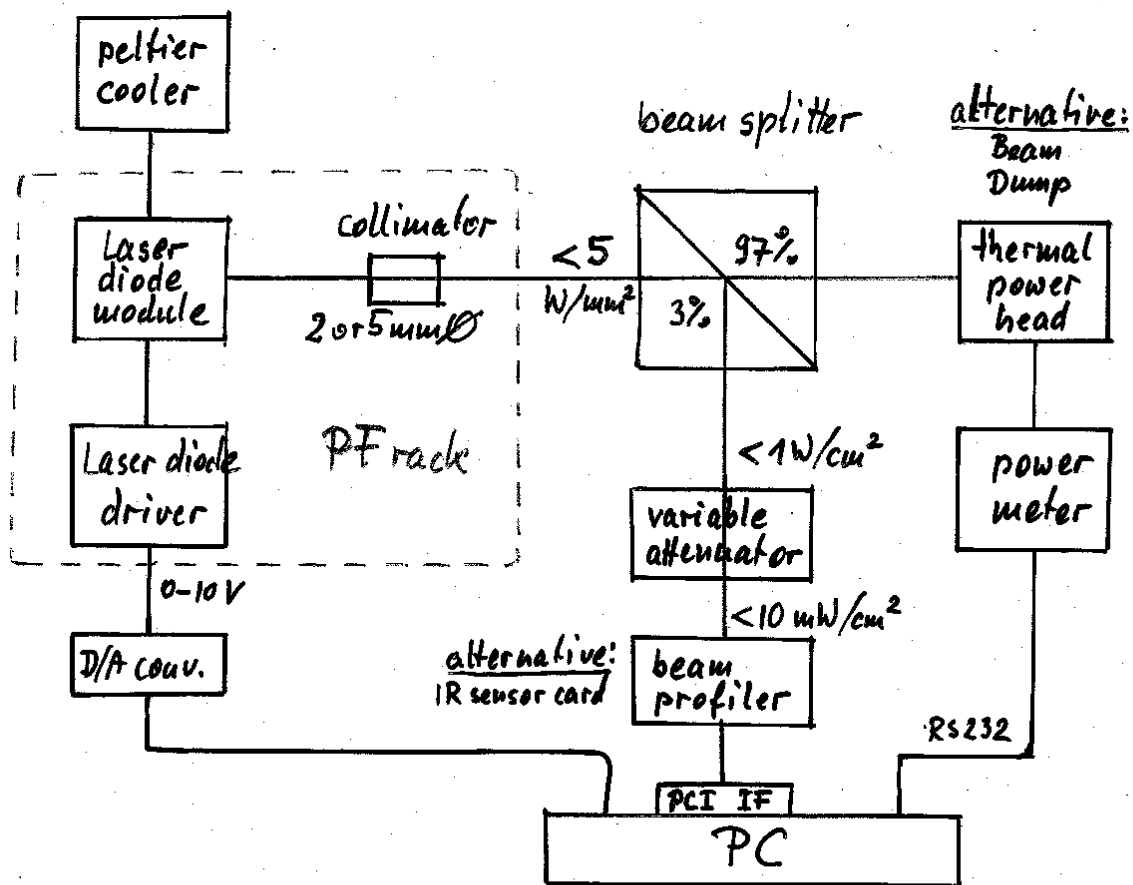 peltier
cooler
beam splitter
alternative:
Beam
Dump
Laser
diode
module
collimator
2 or 5 mm Ø
<5
W/mm²
97%
3%
thermal
power
head
Laser diode
driver
PF rack
<1W/cm²
variable
attenuator
power
meter
0-10V
<10 mW/cm²
D/A conv.
alternative:
IR sensor card
beam
profiler
RS232
PCI IF
PC